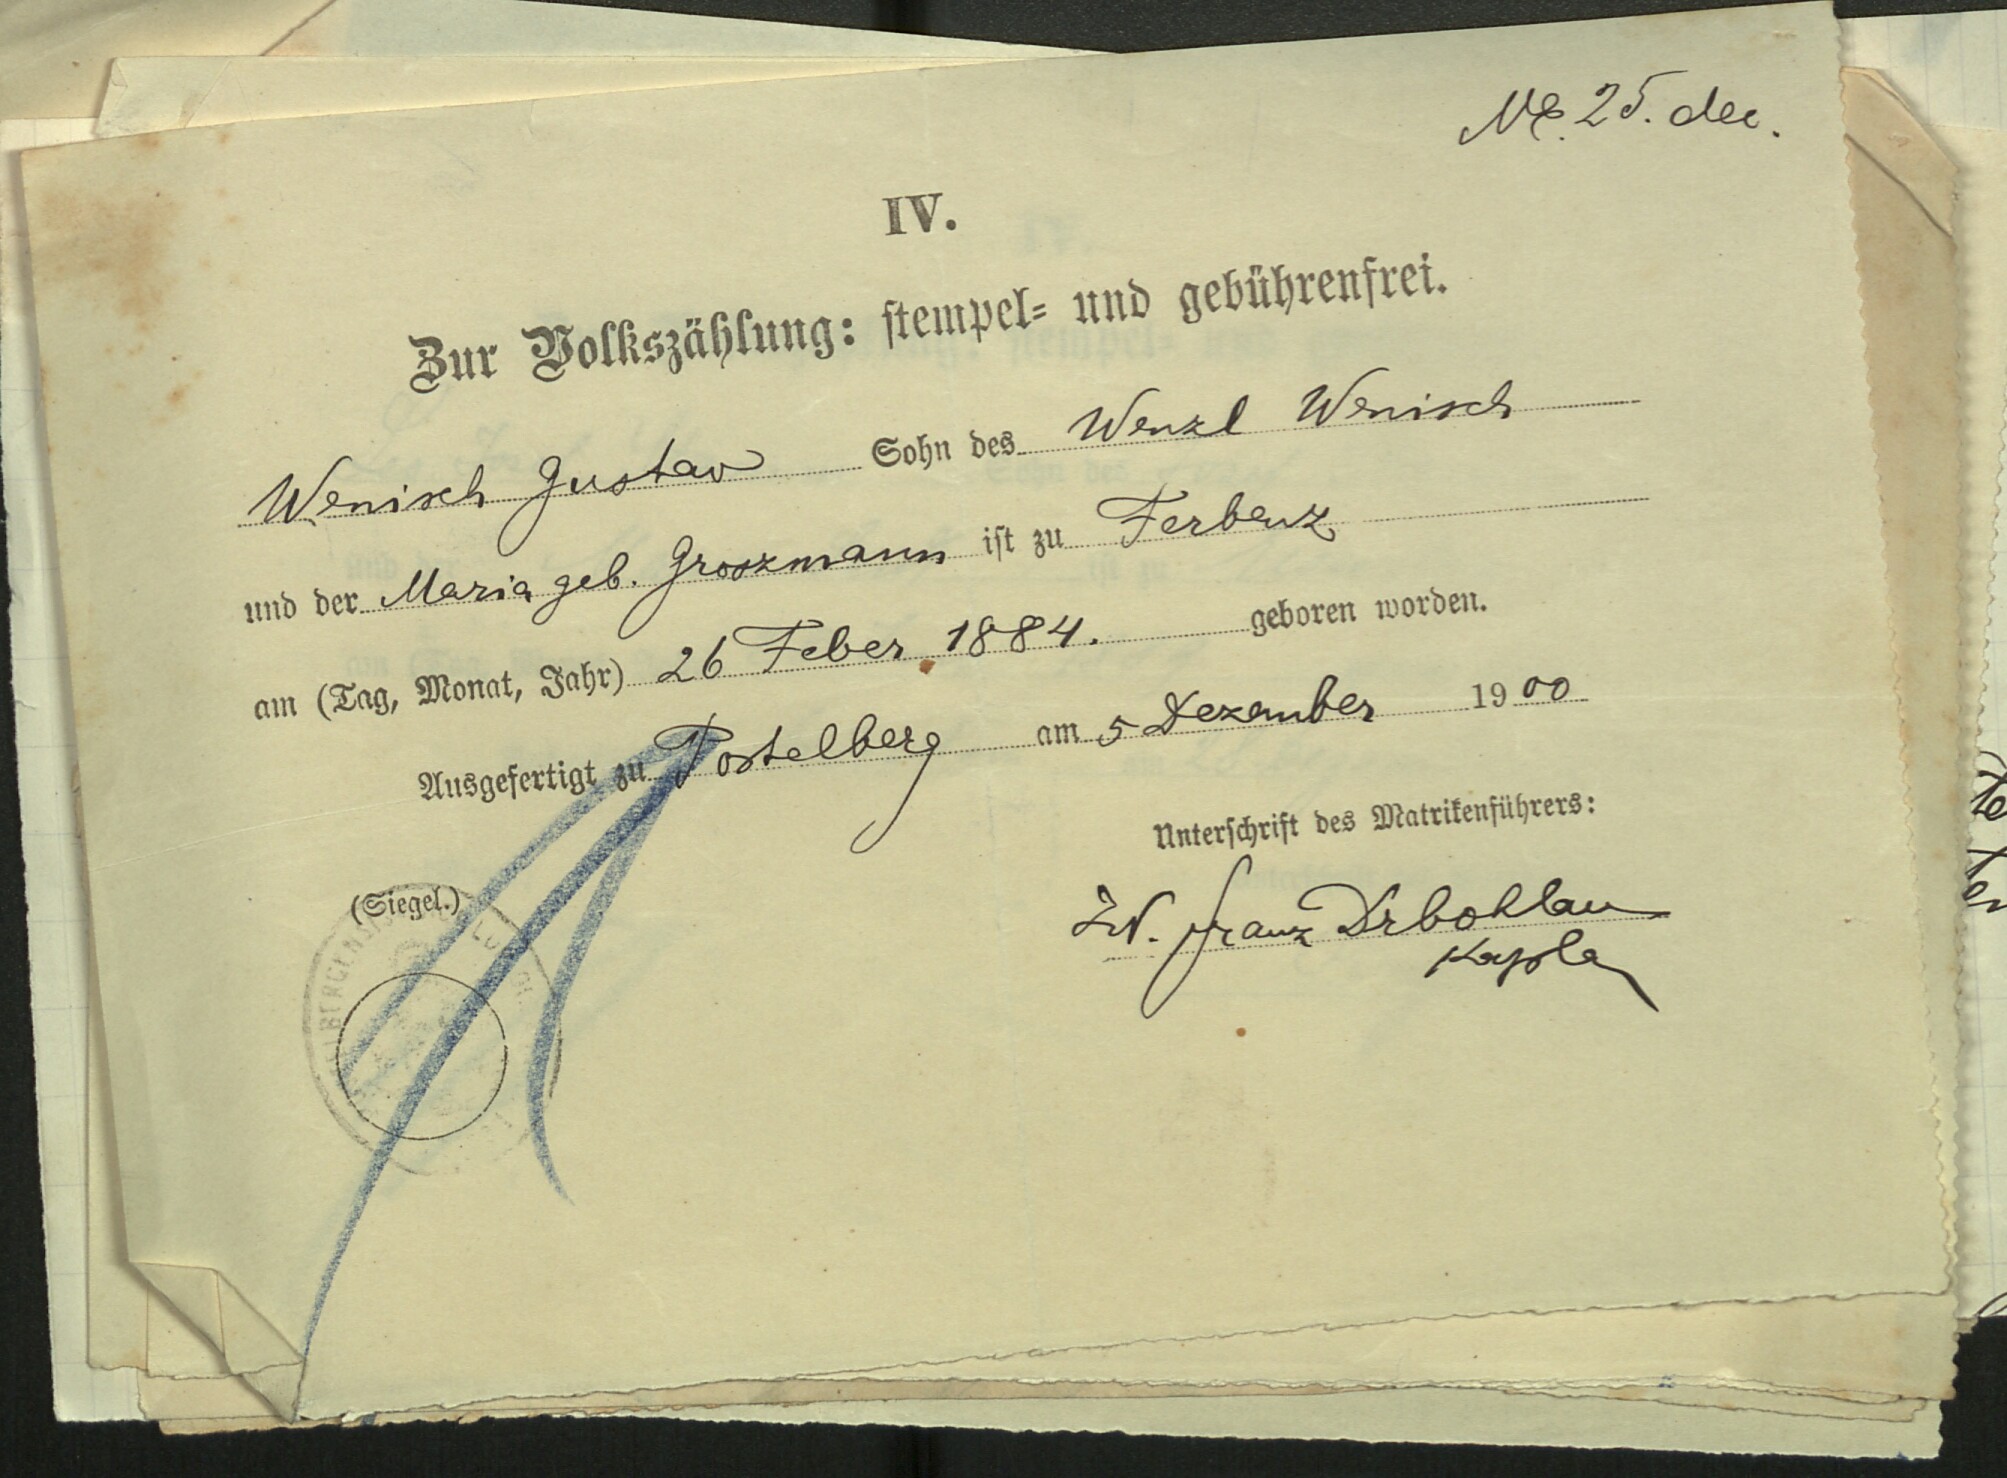 25. dec.
IV.
Zur Volkszählung: stempel- und gebührenfrei.
Wenisch Gustav Sohn des Wenzl Wenisch
und der Maria geb. Groszmann ist zu Ferbenz
am (Tag, Monat, Jahr) 26 Feber 1884. geboren worden.
Ausgefertigt zu Postelberg am 5 Dezember 1900
Unterschrift des Matrikenführers:
(Siegel.)
Franz Drbohlav
Kaplan